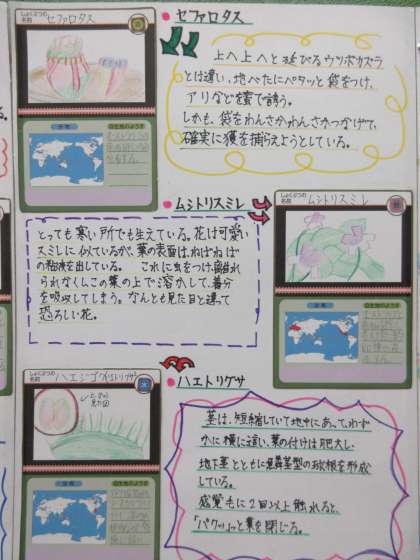 しょくぶつの名前 セファロタス
セファロタス
上へ上へと延びるウツボカズラ
とは違い、地べたにペタッと袋をつけ、
アリなどを蜜で誘う。
しかも、袋をわんさかわんさかつなげて、
確実に獲を捕らえようとしている。
分布
自生地のようす
ムシトリスミレ
しょくぶつの名前 ムシトリスミレ
とっても寒い所でも生えている。花は可愛い
スミレに似ているが、葉の表面は、ねばねば
の粘液を出している。 これに虫をつけ、離れ
られなくしこの葉の上で溶かして、養分
を吸収してしまう。なんとも見た目と違って
恐ろしい花。
分布
自生地のようす
しょくぶつの名前 ハエジゴク(ハエトリグサ)
ハエトリグサ
茎は、短縮していて地中にあって、わず
かに横に這い、葉の付けは肥大し、
地下茎とともに
の球根を形成
している。
感覚毛に2回以上触れると、
「パクッ」っと葉を閉じる。
分布
自生地のようす